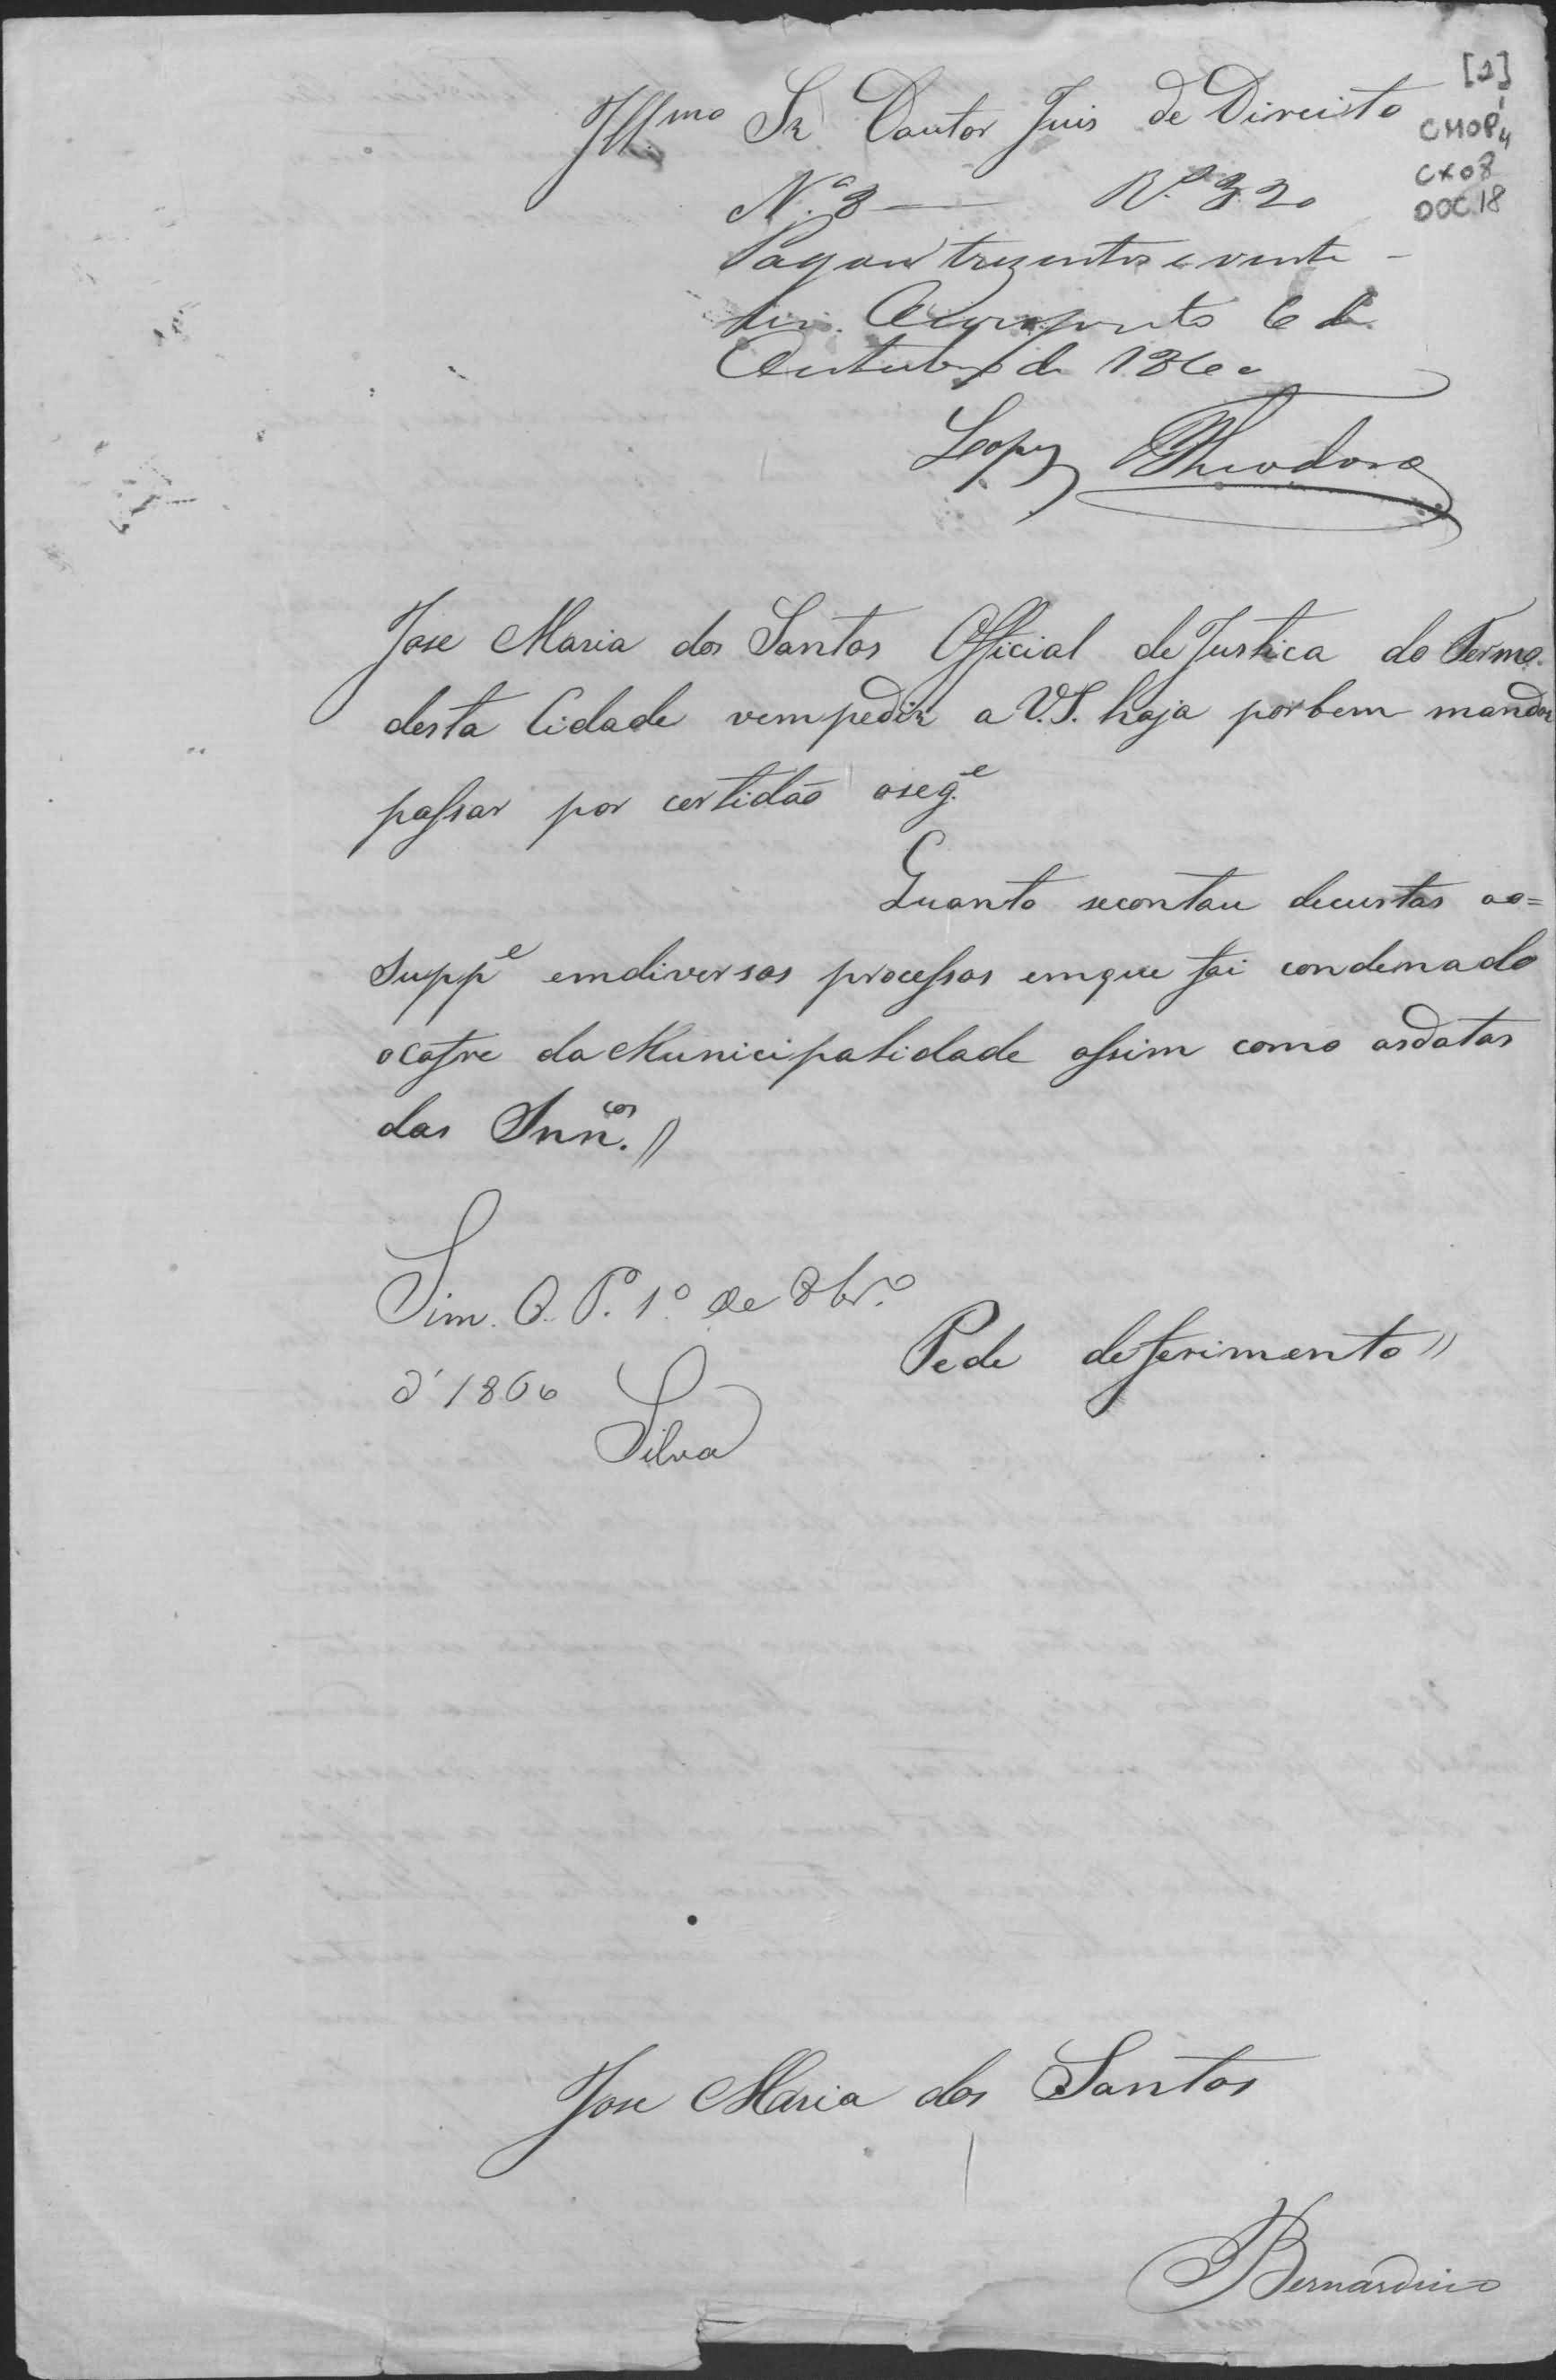 [1]
CMOP
CX08
DOC.18
Illmo Sr Doutor Juis de Direisto
N.º 3 — R.s 320
Pagou trezentos e vinte
reis. Ouropreto 6 de
Outubro de 1860
Lopes Theodoro
Jose Maria dos Santos Official de Justica do Termo
desta Cidade vem pedir a V.S. haja por bem mandar
passar por certidão oseg.e
Quanto secontou decustas ao=
Supp.e emdiversos processos emque foi condemnado
ocofre da Municipalidade assim como asdatas
das Snn.cas //
Sim. O. P.º 1.º de 8br.º
d'1860
Silva
Pede deferimento //
Jose Maria dos Santos
Bernardino